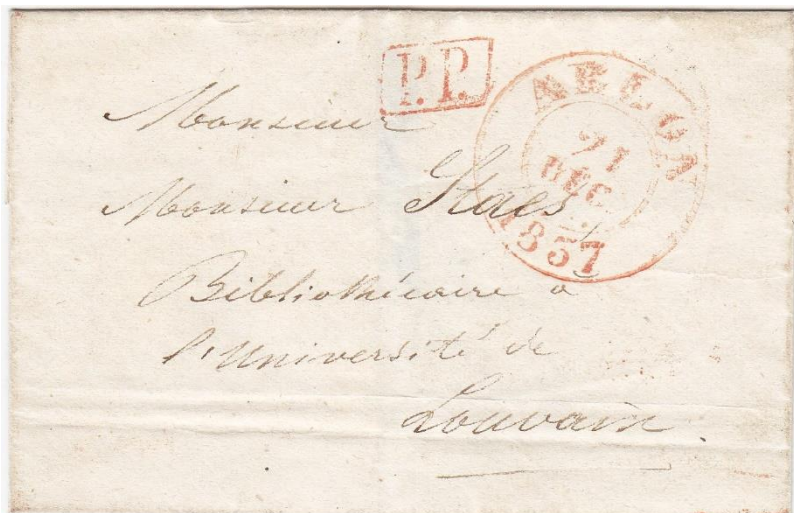 P.P.
ARLON
21
DEC
1837
Monsieur
Monsieur Staes,
Bibliothécaire à
l'Université de
Louvain.